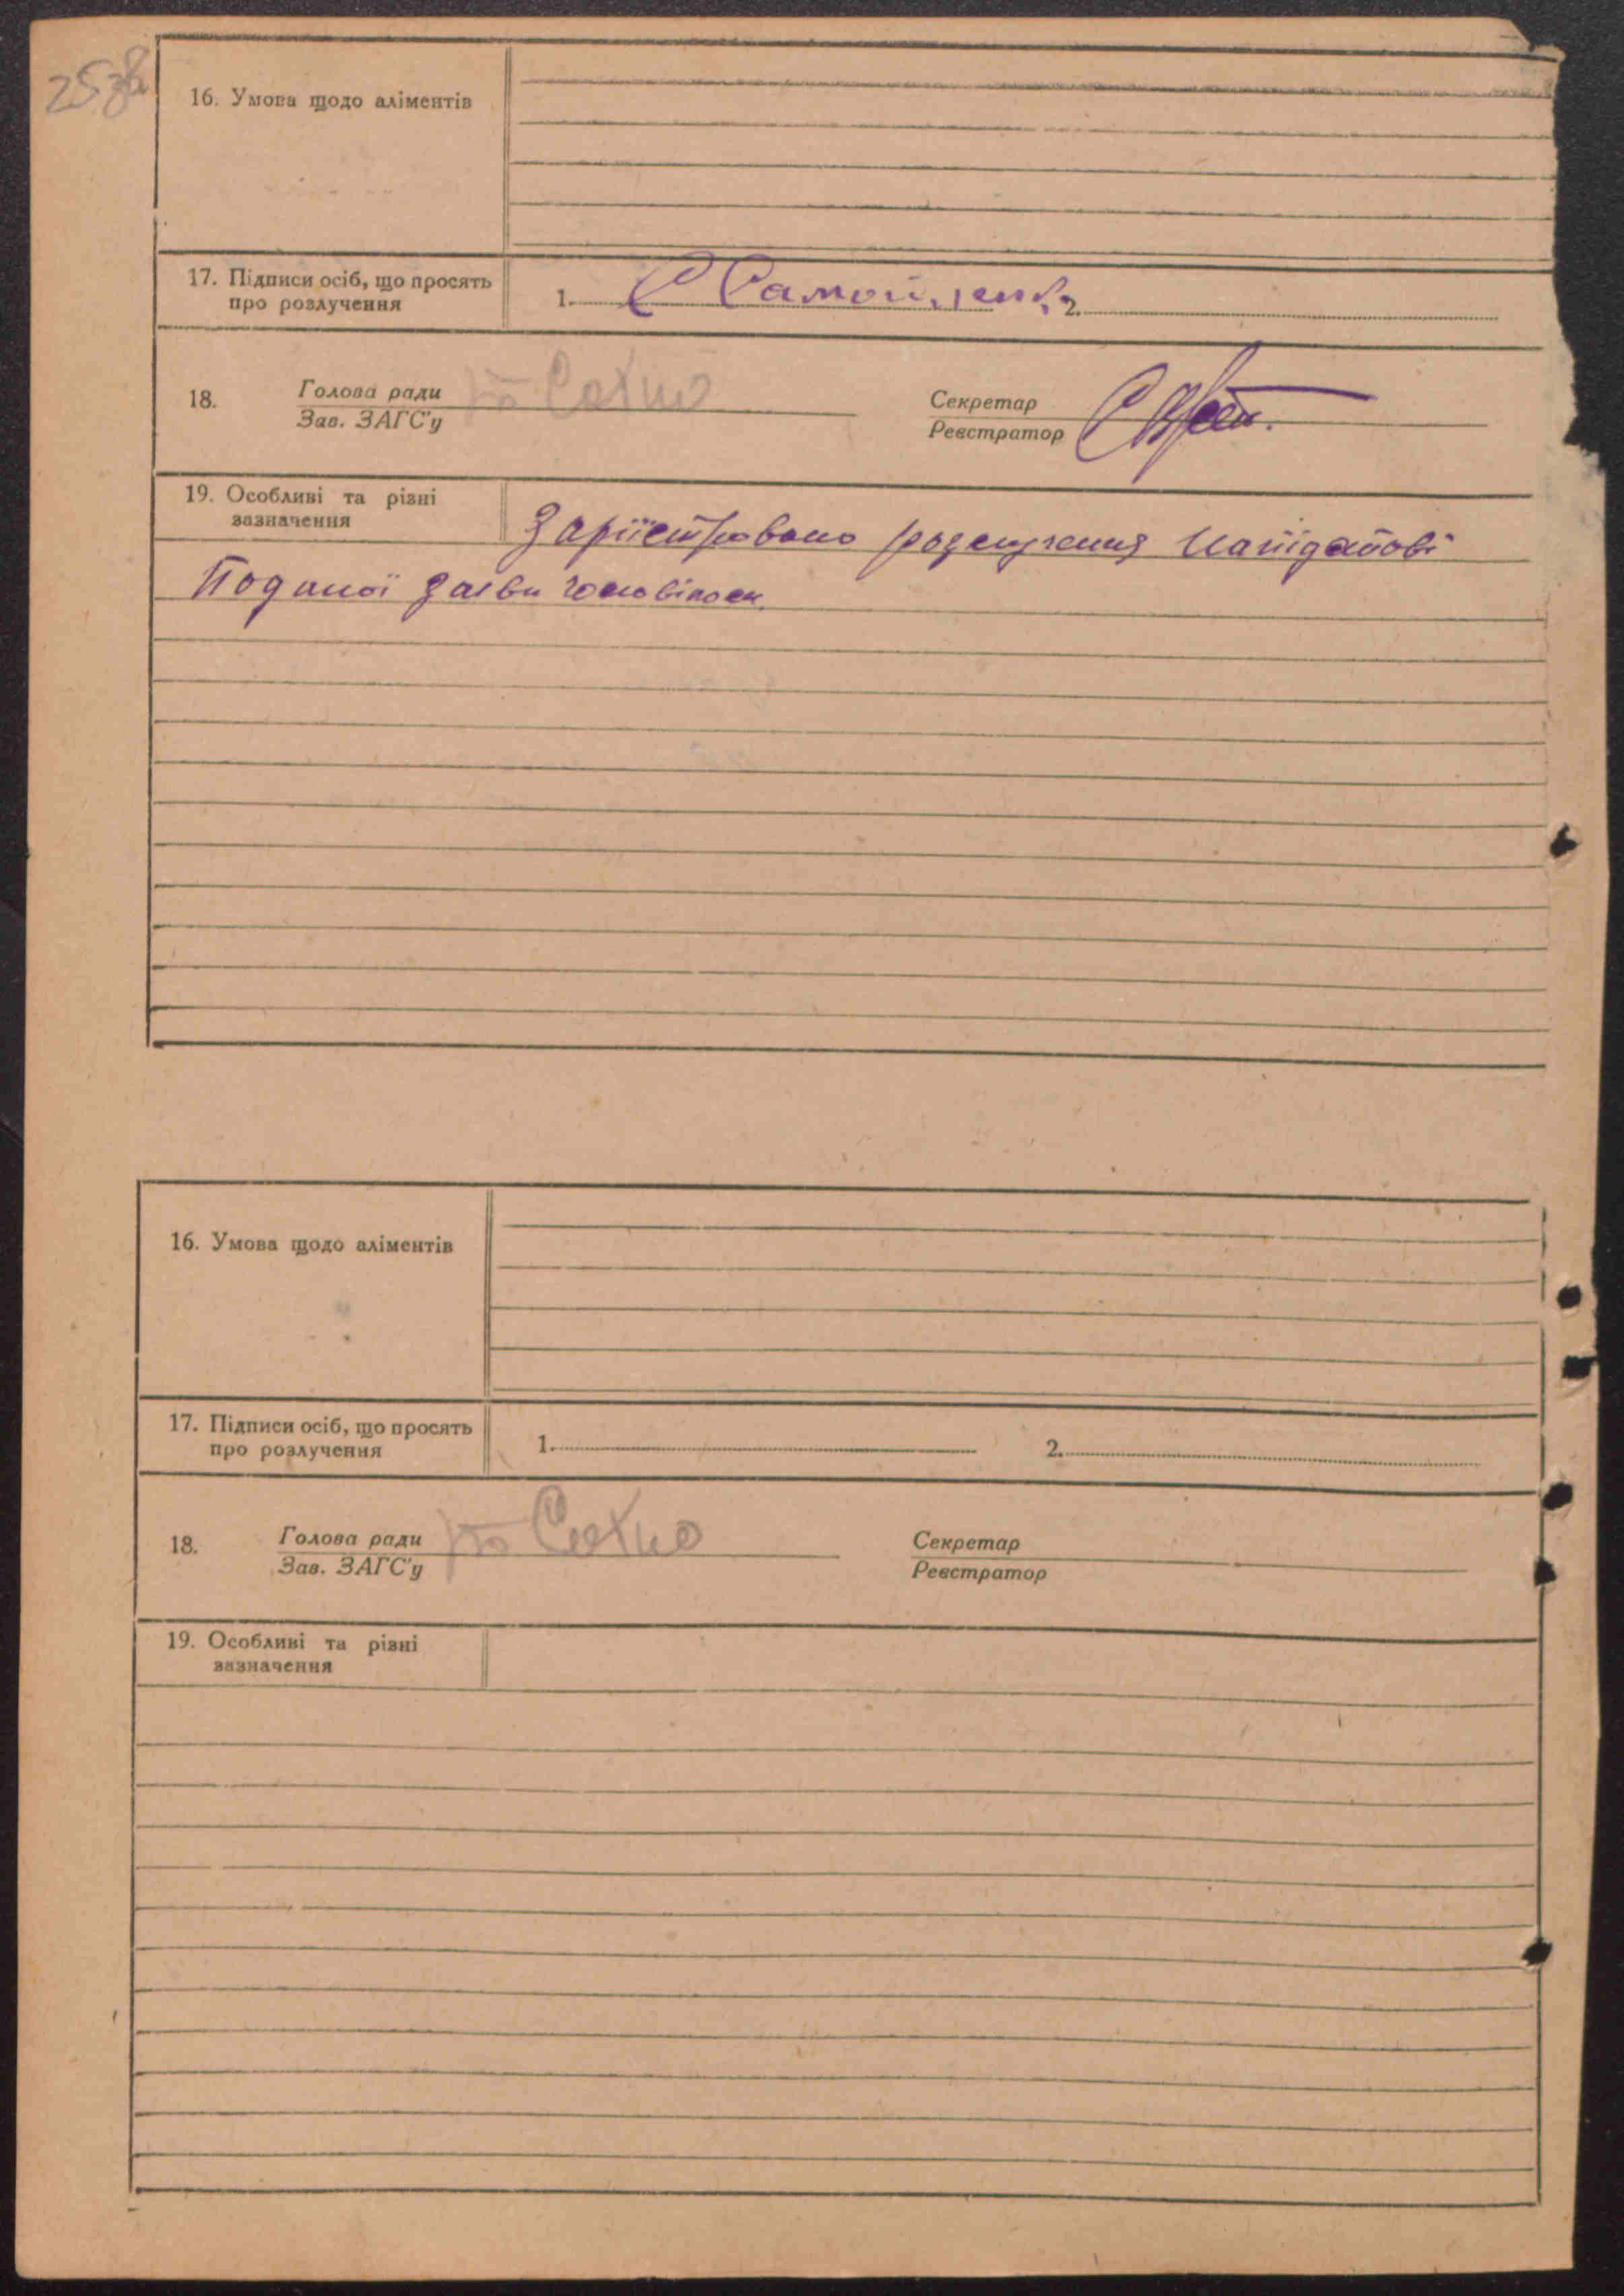 25зв
16. Умова щодо аліментів
17. Підписи осіб, що просять
про розлучення
1. С Самойленко 2.
18. Голова ради
Зав. ЗАГС'у
Секретар
Реєстратор
19. Особливі та різні
зазначення
Зарііестровано розлучення Напідставі
Поданої заяви чоловіком.
16. Умова щодо аліментів
17. Підписи осіб, що просять
про розлучення
1. 2.
18. Голова ради
Зав. ЗАГС'у
Секретар
Реєстратор
19. Особливі та різні
зазначення